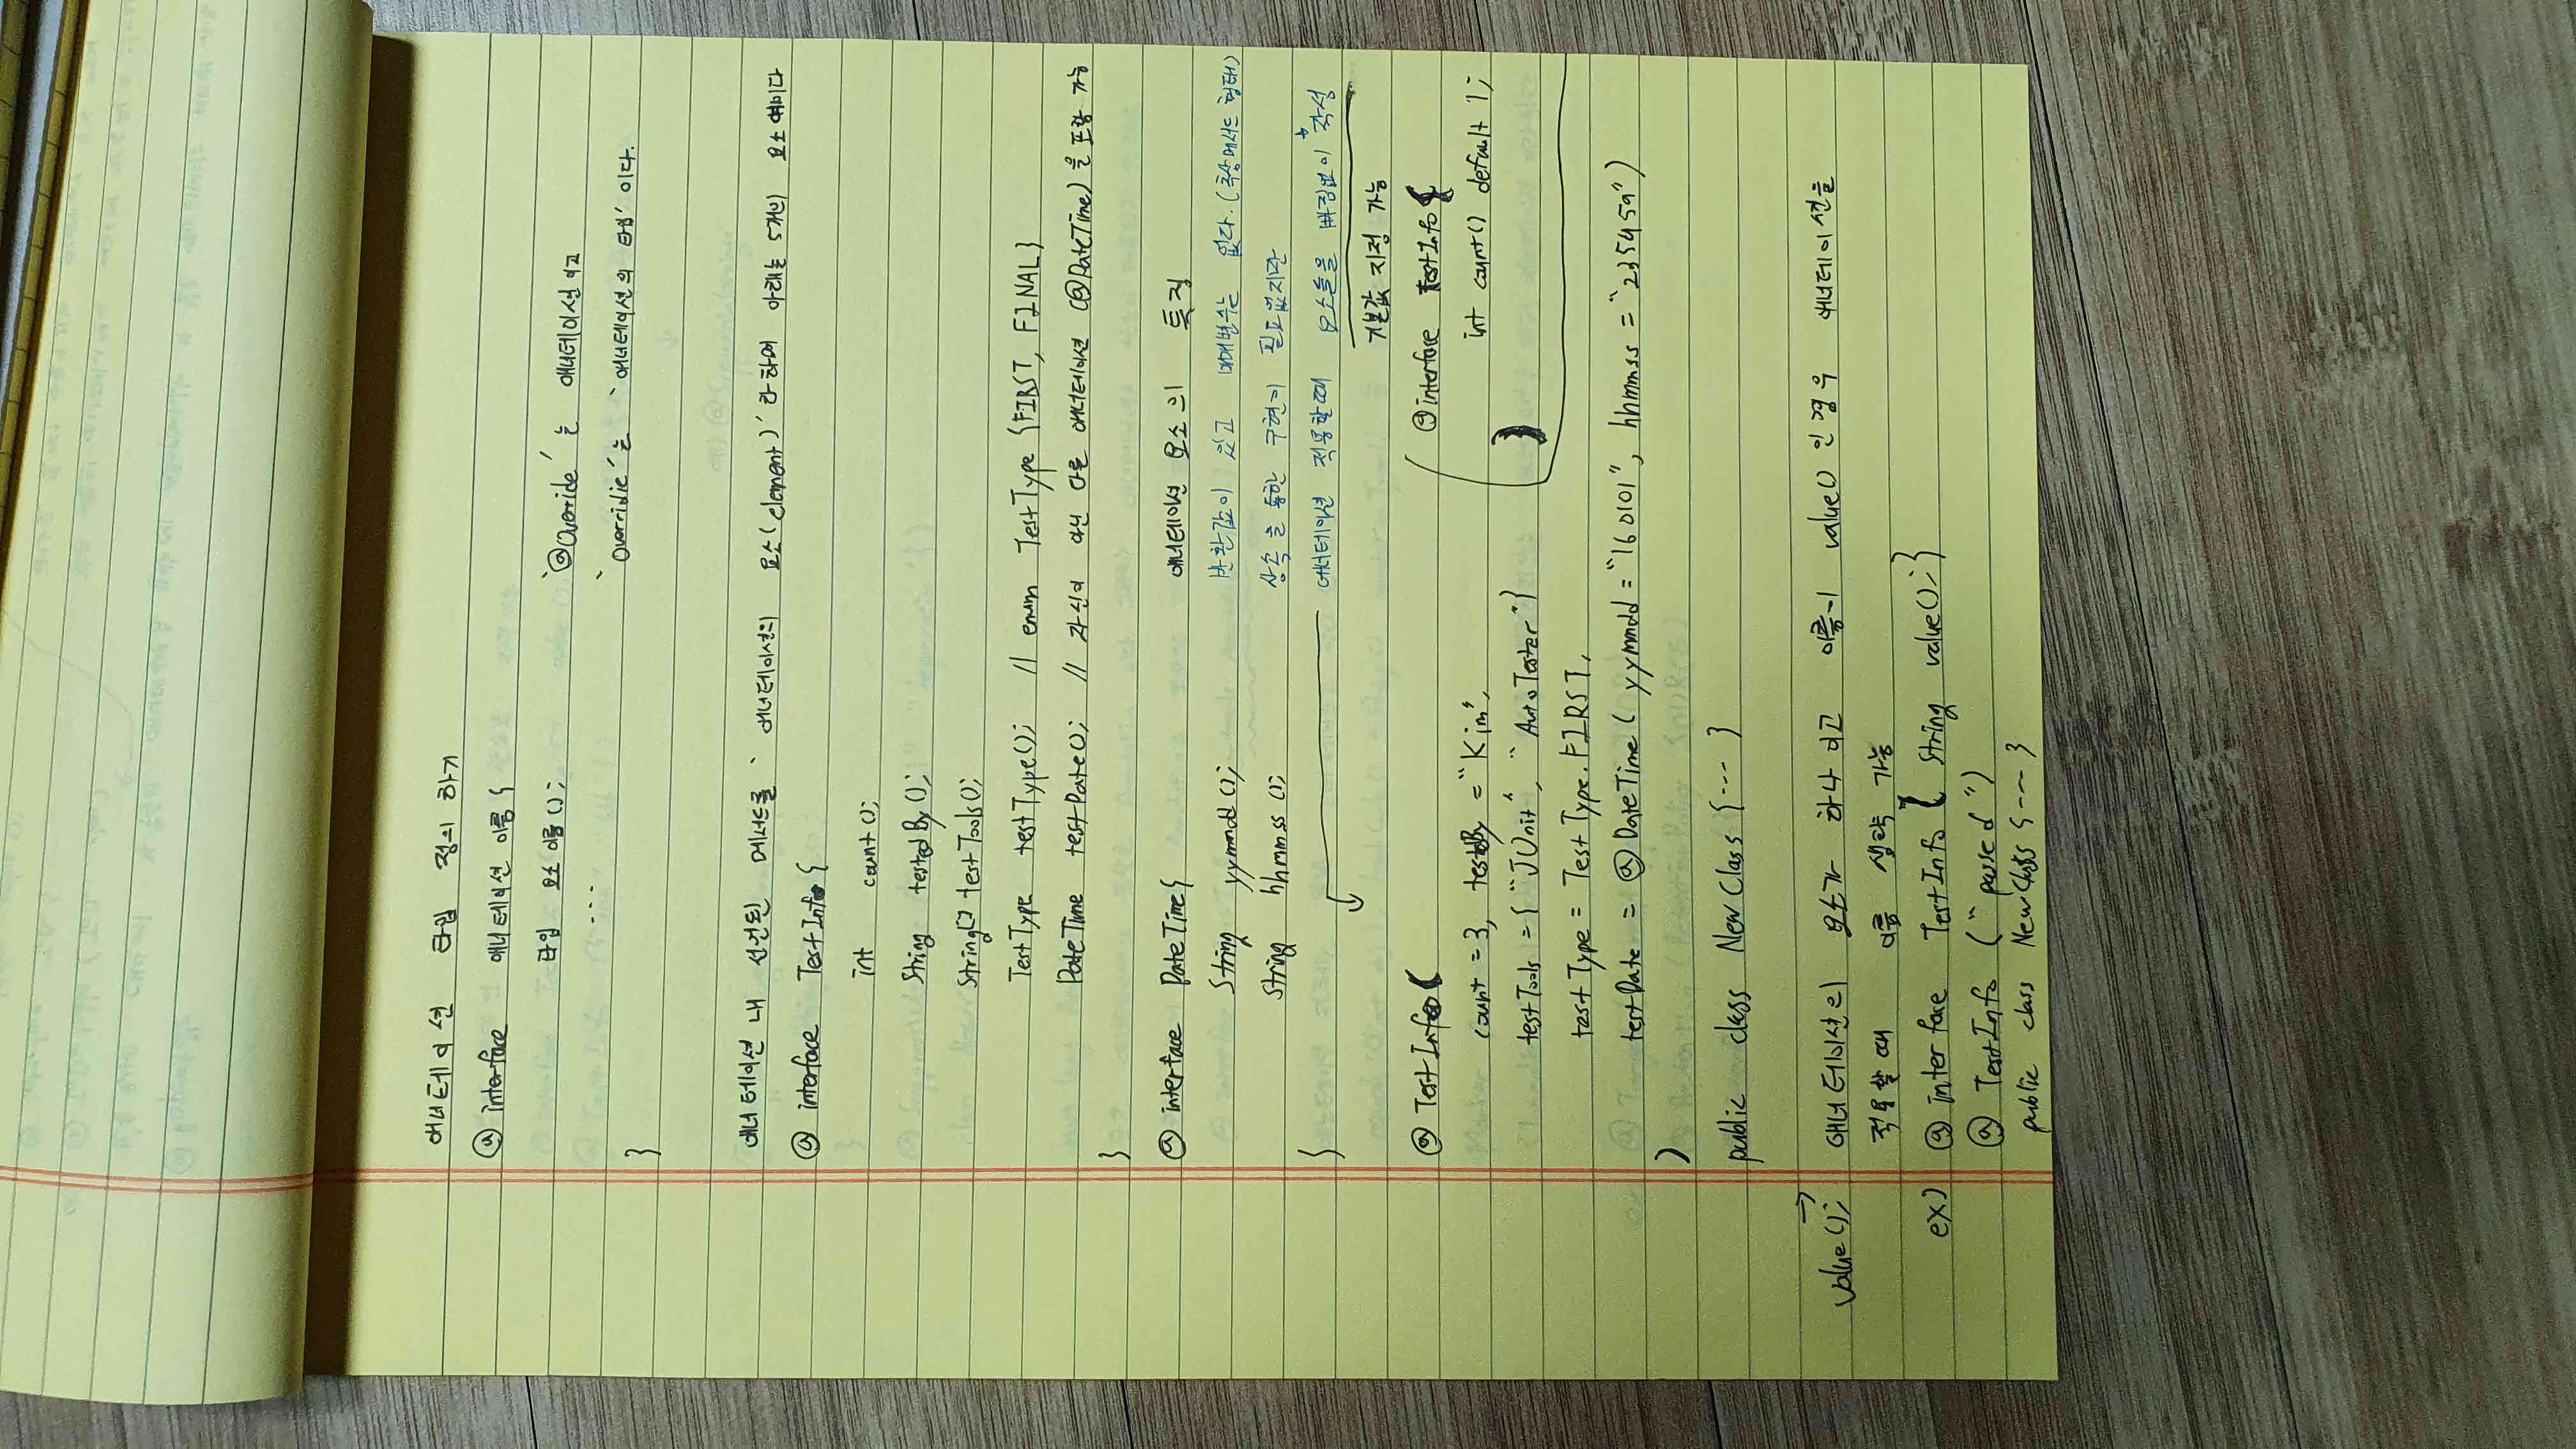 애너테이션 타입 정의 하기
@ interface 애너테이션 이름 {
타입 요소 이름 ();
...
}
'@Override' 는 애너테이션 이고
'Overridie' 는 '애너테이션의 타입' 이다.
애너테이션 내 선언된 메서드를 '애너테이션의 요소(element)' 라 하며 아래는 5개의 요소 예이다
@ interface TestInfo {
int count ();
String testedBy ();
String[] testTools ();
TestType testType(); // enum TestType {FIRST, FINAL}
DateTime testDate(); // 자신이 아닌 다른 애너테이션 (@DateTime) 을 포함 가능
}
@ interface DateTime {
String yymmdd ();
String hhmmss ();
}
애너테이션 요소의 특징
반환값이 있고 매개변수는 없다. (추상메서드 형태)
상속을 통한 구현이 필요없지만
애너테이션 적용할때 요소들을 빠짐없이 작성
기본값 지정 가능
@interface TestInfo {
int count() default 1;
}
@ TestInfo (
count = 3, testedBy = "Kim",
testTools = { "JUnit", "AutoTester" }
testType = TestType.FIRST,
testDate = @ DateTime ( yymmdd = "160101", hhmmss = "235959" )
)
public class NewClass { --- }
value(); → 애너테이션의 요소가 하나 이고 이름이 value() 인 경우 애너테이션을
적용할 때 이름 생략 가능
ex) @ interface TestInfo { String value(); }
@ TestInfo ("passed")
public class NewClass { --- }